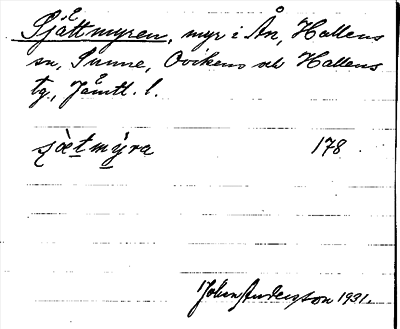 Sjåttmyren, myr i Ån, Hallens
sn, Sunne, Ovikens och Hallens
tg., Jämtl. l.
sjætmýra 178
Johan Anderson 1931.